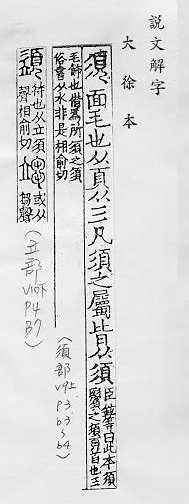 說文解字
大徐本
須面毛也从頁从彡凡須之屬皆从須臣鉉等曰此本須鬢之須頁首也彡
毛飾也借爲所須之須
俗書从水非是相俞切
（須部 V9上 P3 b3~b4）
䇓待也从立須聲相俞切或从芻聲
（立部 V10下 P4 B7）